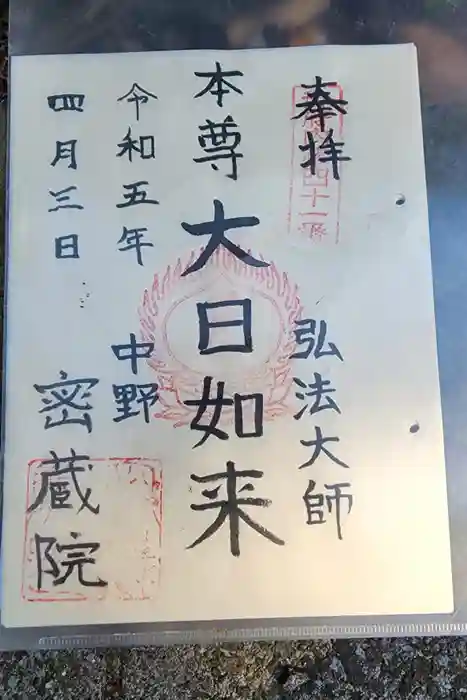 奉拝
弘法大師
本尊
大日如来
令和五年
中野
四月三日
密蔵院